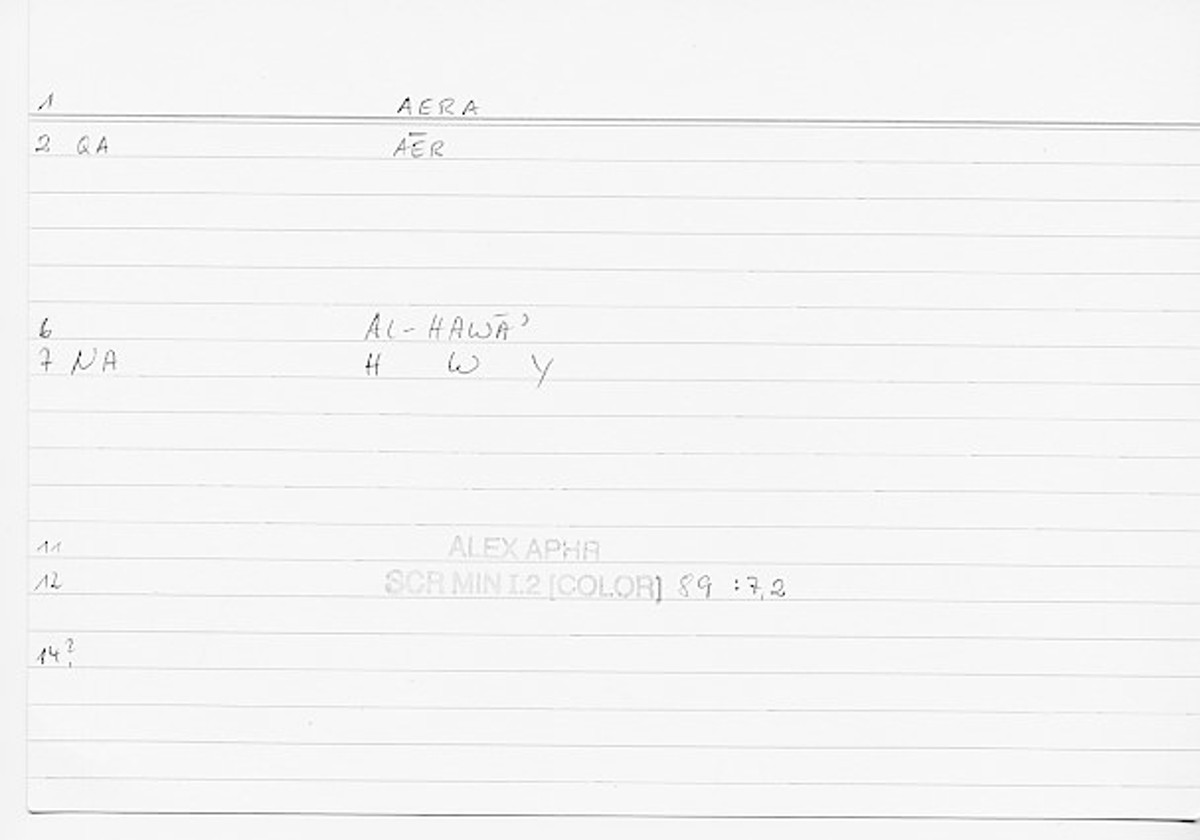 1 AERA
2 QA AĒR
6 AL-HAWĀʾ
7 NA H W Y
11 ALEX APHR
12 SCR MIN I.2 [COLOR] 89 :7,2
14?